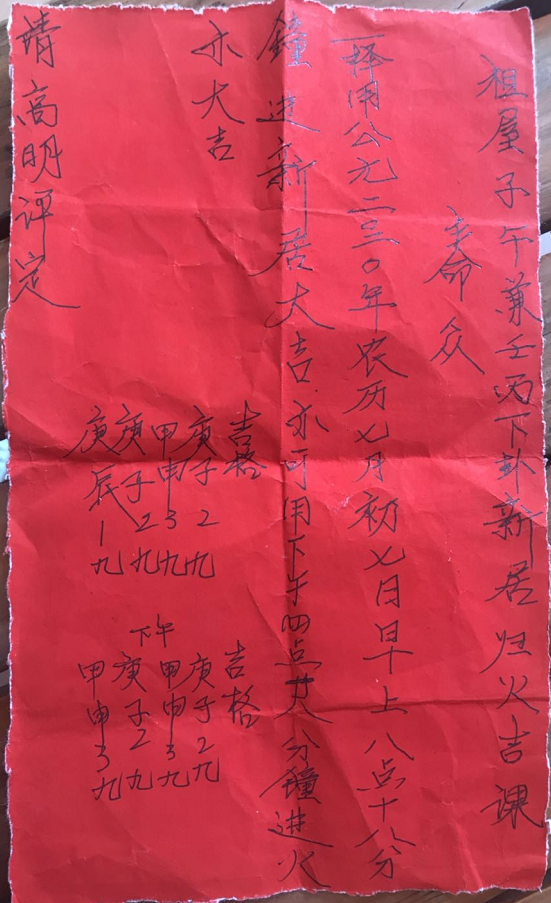 祖屋子午兼壬丙下卦新居归火吉课
主命众
一择用公元二0二0年农历七月初七日早上八点十八分
鐘进新居大吉亦可用下午四点廿八分鐘进火
亦大吉
吉格
庚子2九
甲申3九
庚子2九
庚辰1九
吉格
庚子2九
甲申3九
下午
庚子2九
甲申3九
请高明评定